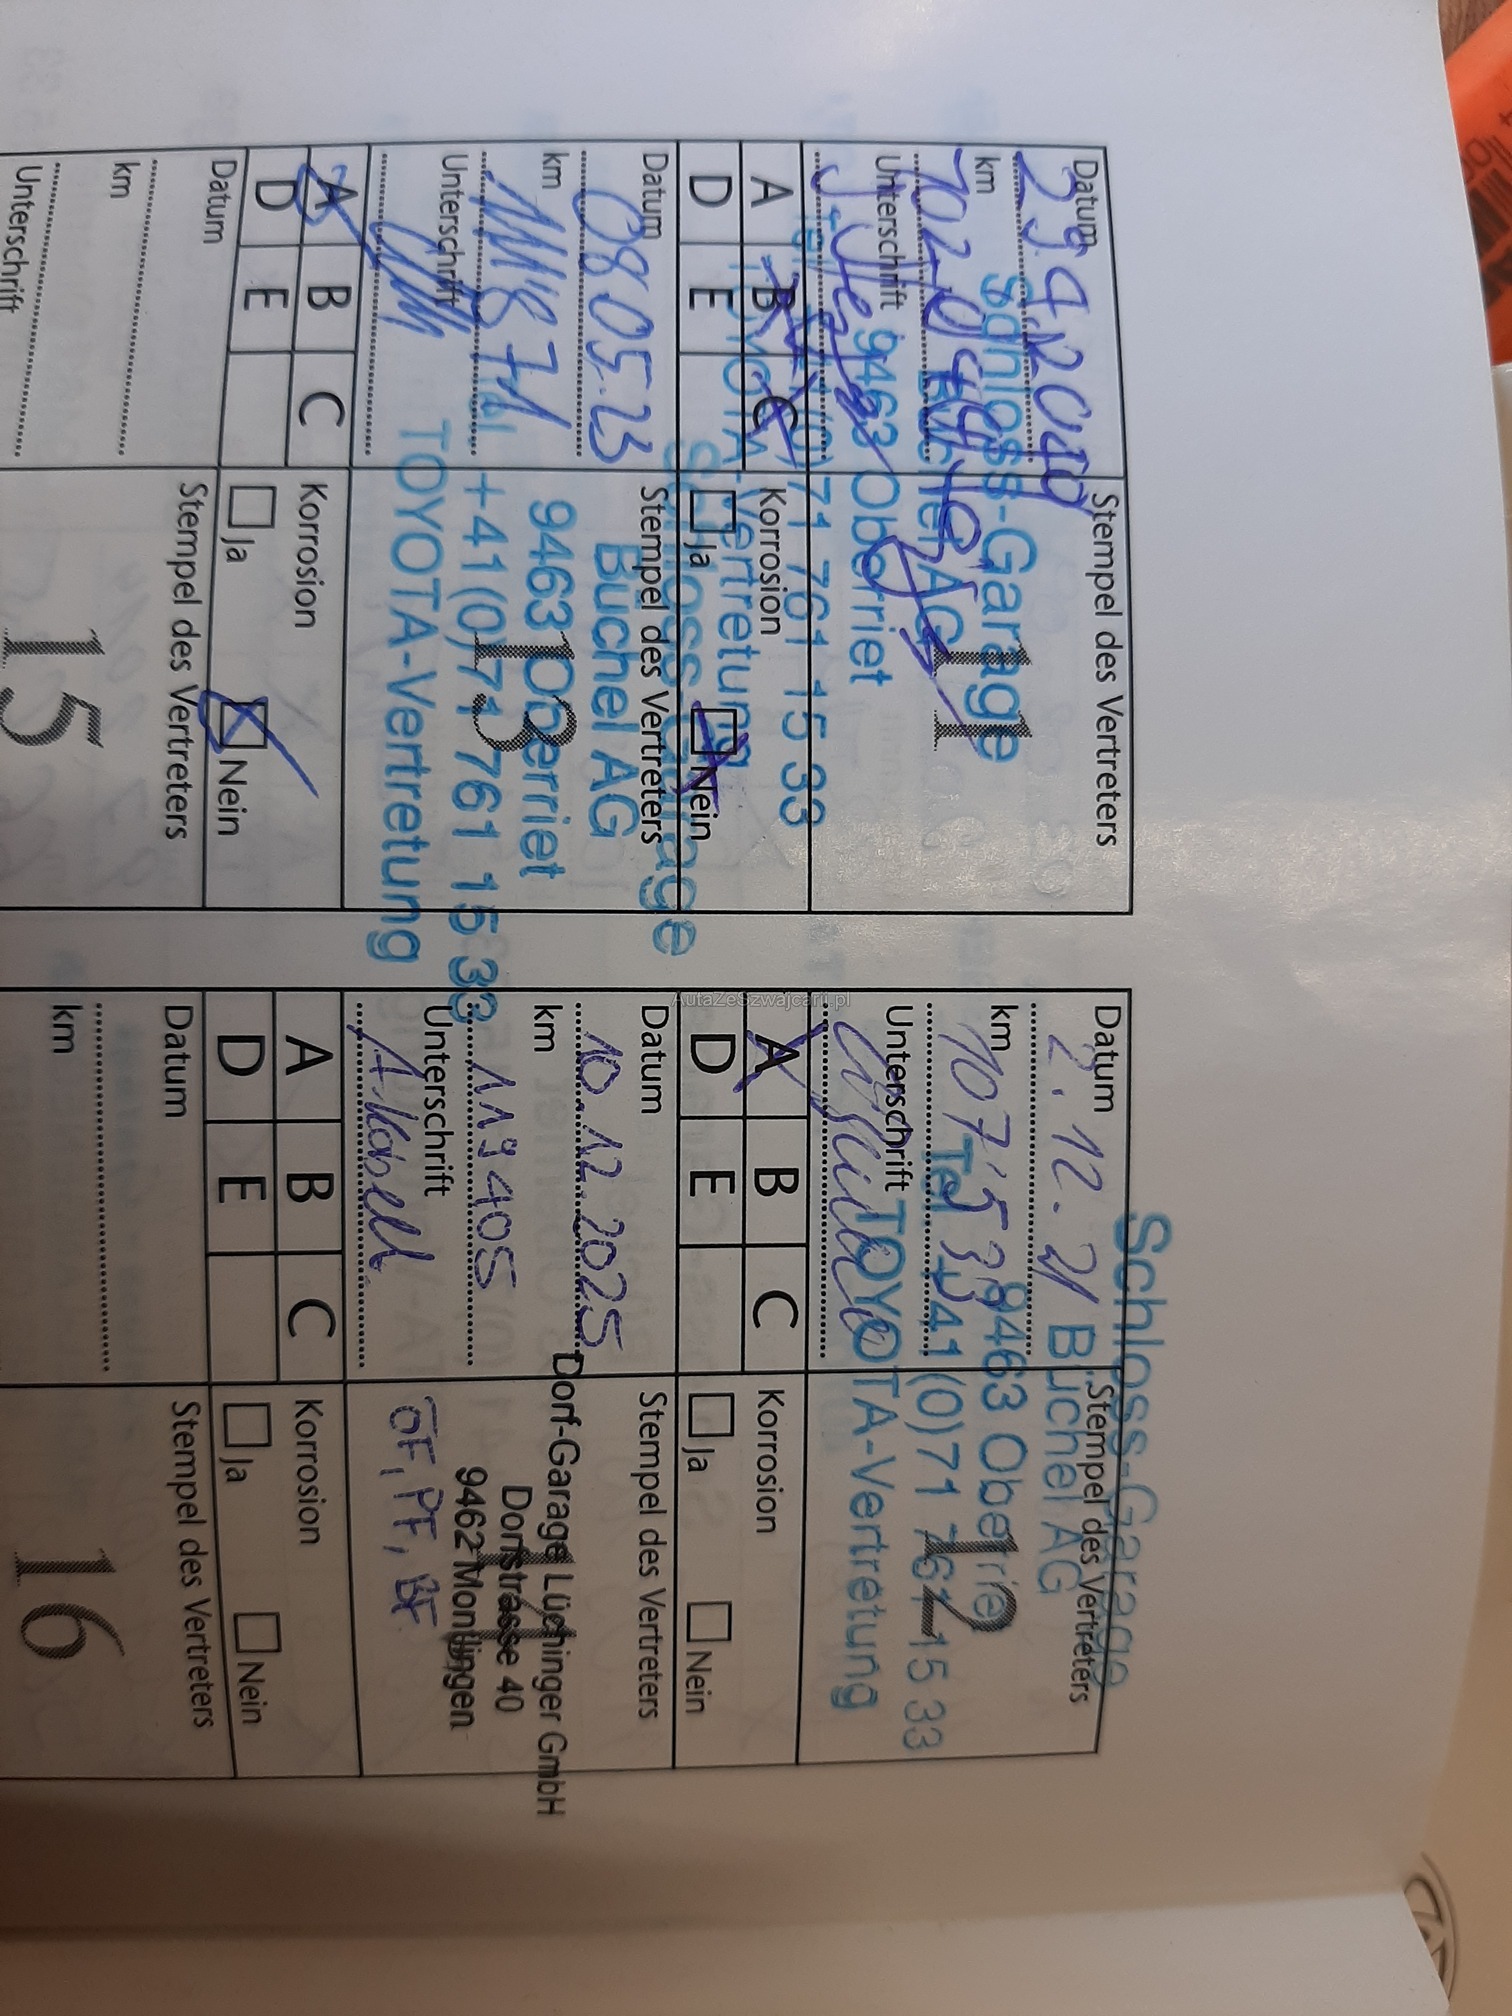 Datum
Stempel des Vertreters
km
Schloss-Garage
Büchel AG
Unterschrift
9463 Oberriet
11
71 761 15 33
TOYOTA-Vertretung
A B C
Korrosion
D E
Ja
Nein
Datum
Stempel des Vertreters
2.12.21
Schloss-Garage
Büchel AG
km
107'533
9463 Oberriet
Tel. +41 (0)71 761 15 33
Unterschrift
TOYOTA-Vertretung
12
A B C
Korrosion
D E
Ja
Nein
Datum
Stempel des Vertreters
08.05.23
Schloss-Garage
Büchel AG
km
9463 Oberriet
+41(0)71 761 15 33
Unterschrift
TOYOTA-Vertretung
13
A B C
Korrosion
D E
Ja
Nein
Datum
Stempel des Vertreters
10.12.2025
km
Dorf-Garage Lüchinger GmbH
119405
Dorfstrasse 40
9462 Montlingen
Unterschrift
ÖF, PF, BF
A B C
Korrosion
D E
Ja
Nein
Datum
Stempel des Vertreters
km
15
Unterschrift
Datum
Stempel des Vertreters
km
16
AutaZeSzwajcarii.pl